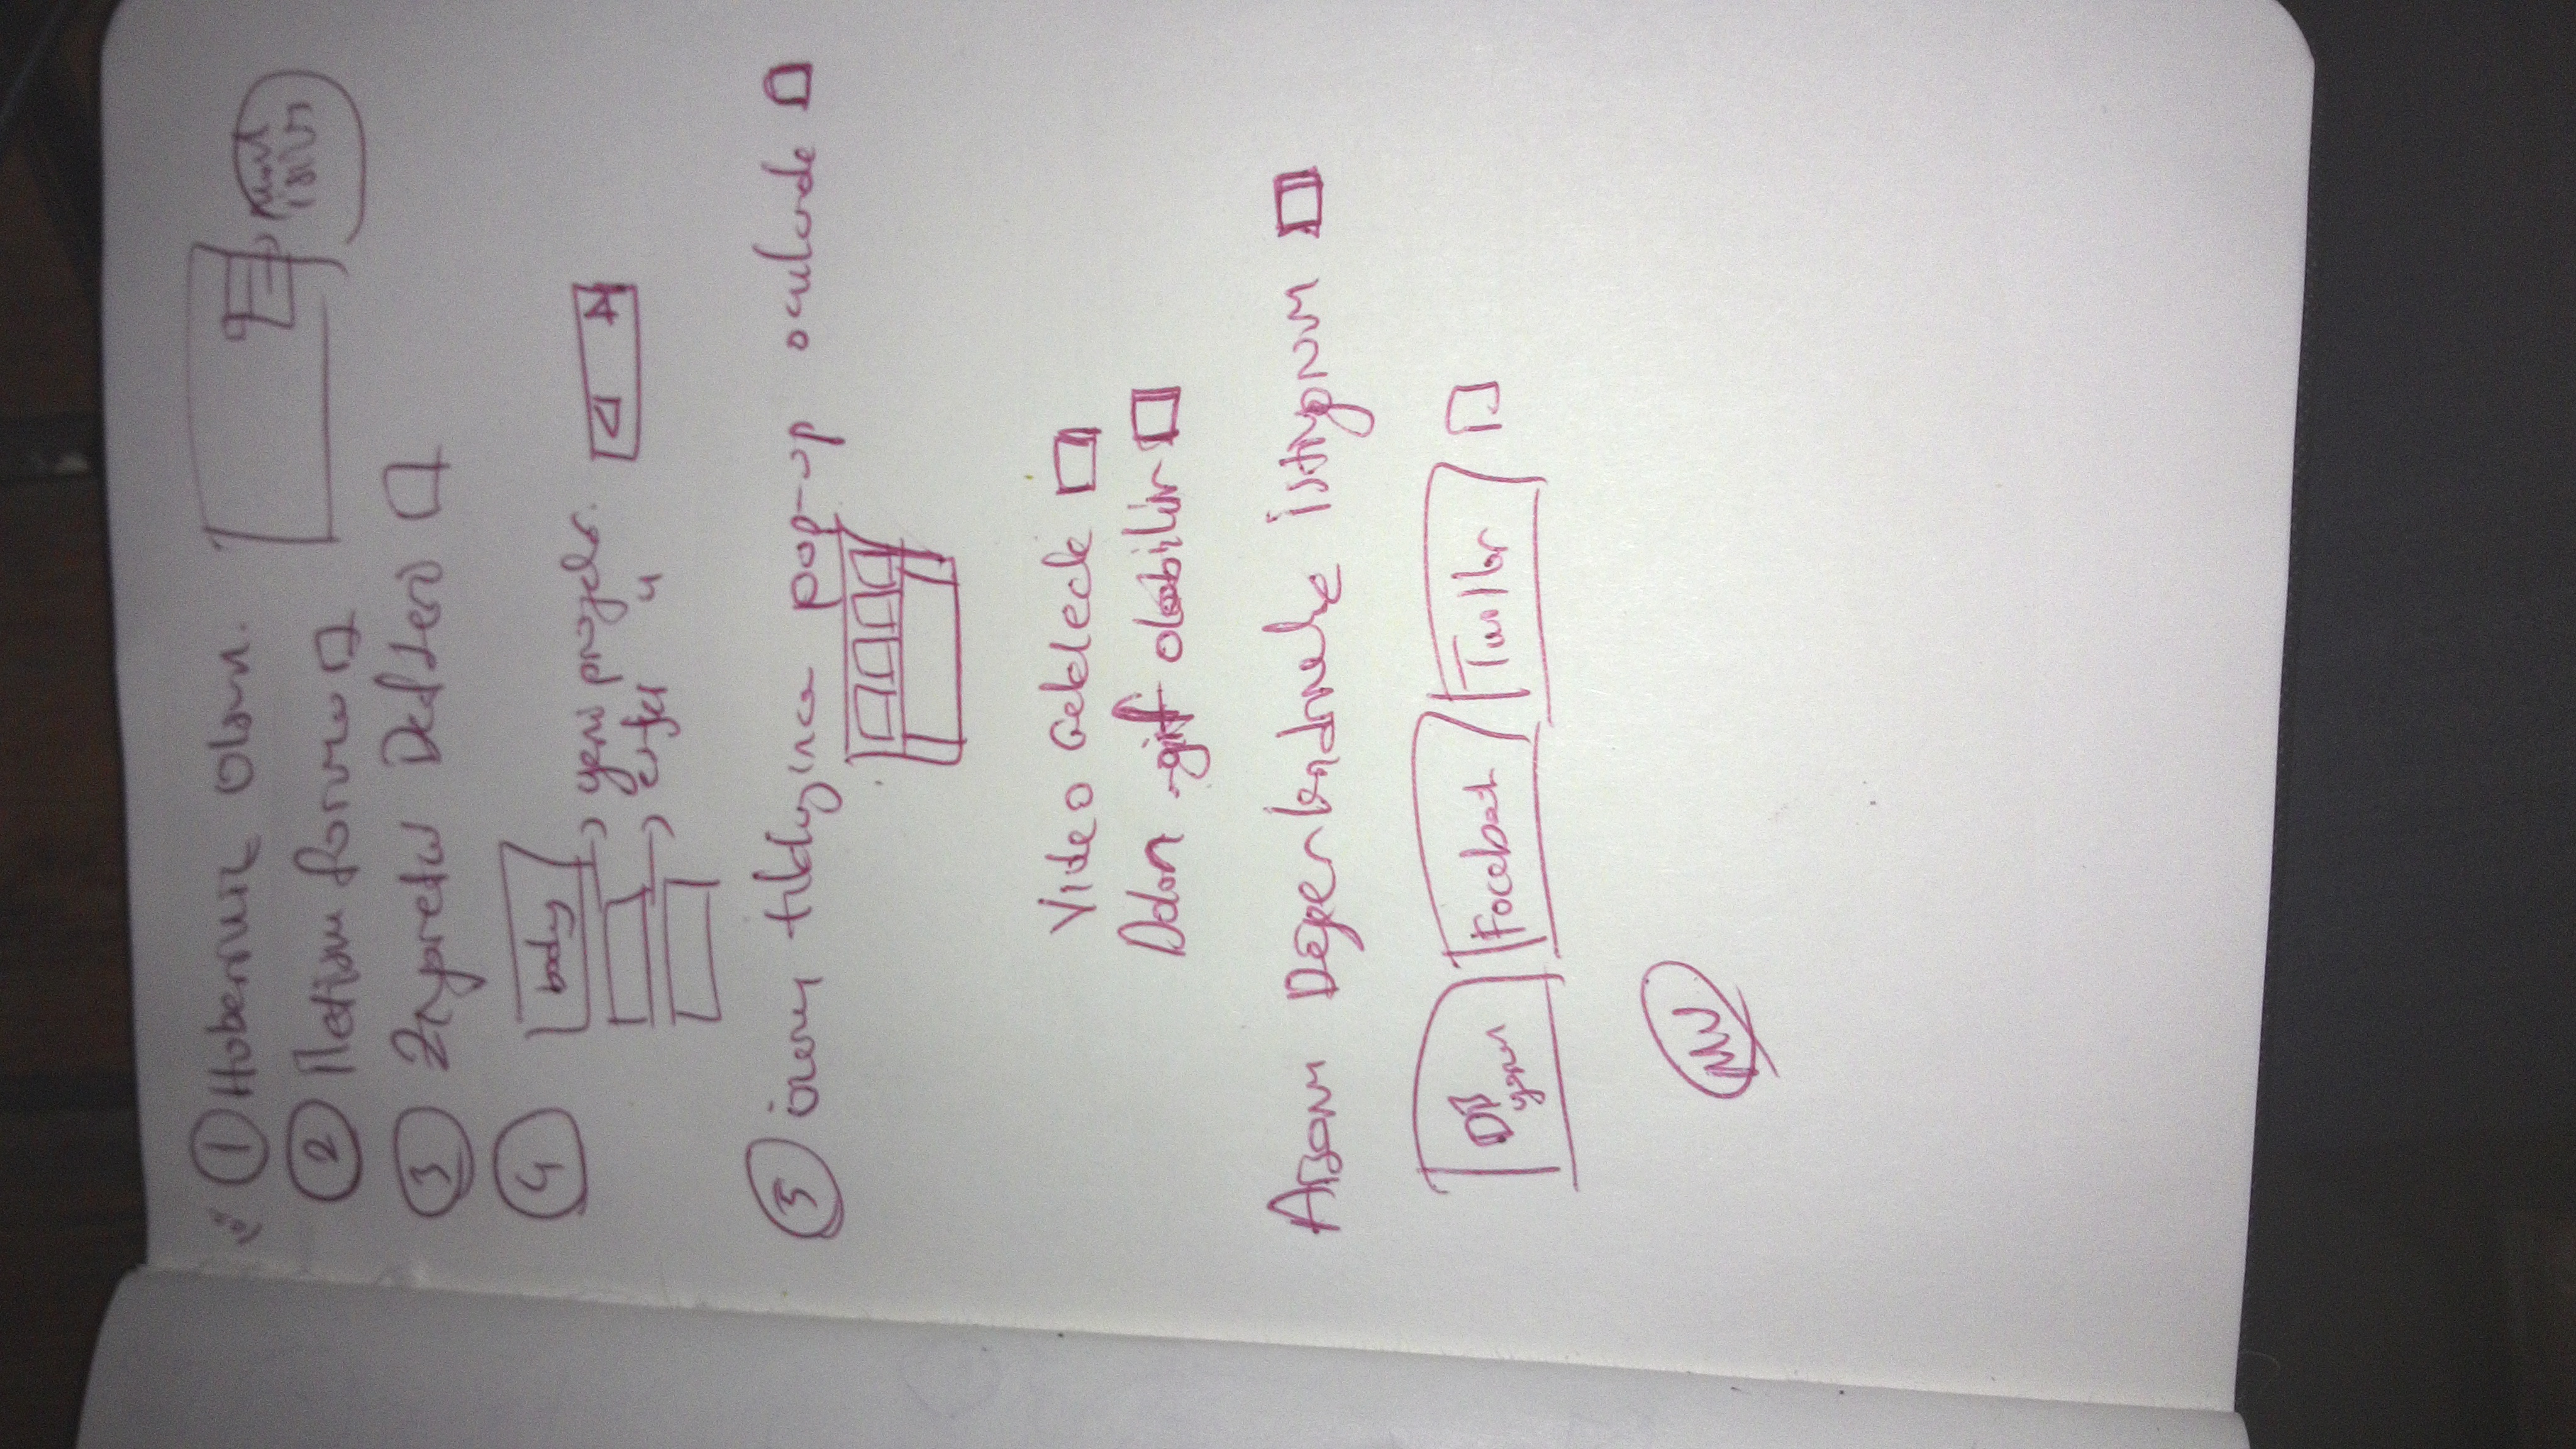 ① Haberiniz Olsun.
② İletişim formu
③ Ziyaretçi Defteri
④
body
yeni projeler.
"
⑤ tıkladığınca pop-up açılacak
Video Gelecek
.gif olabilir
Arsamı Değerlendirmek İstiyorum
DB yorum
Facebook
Twitter